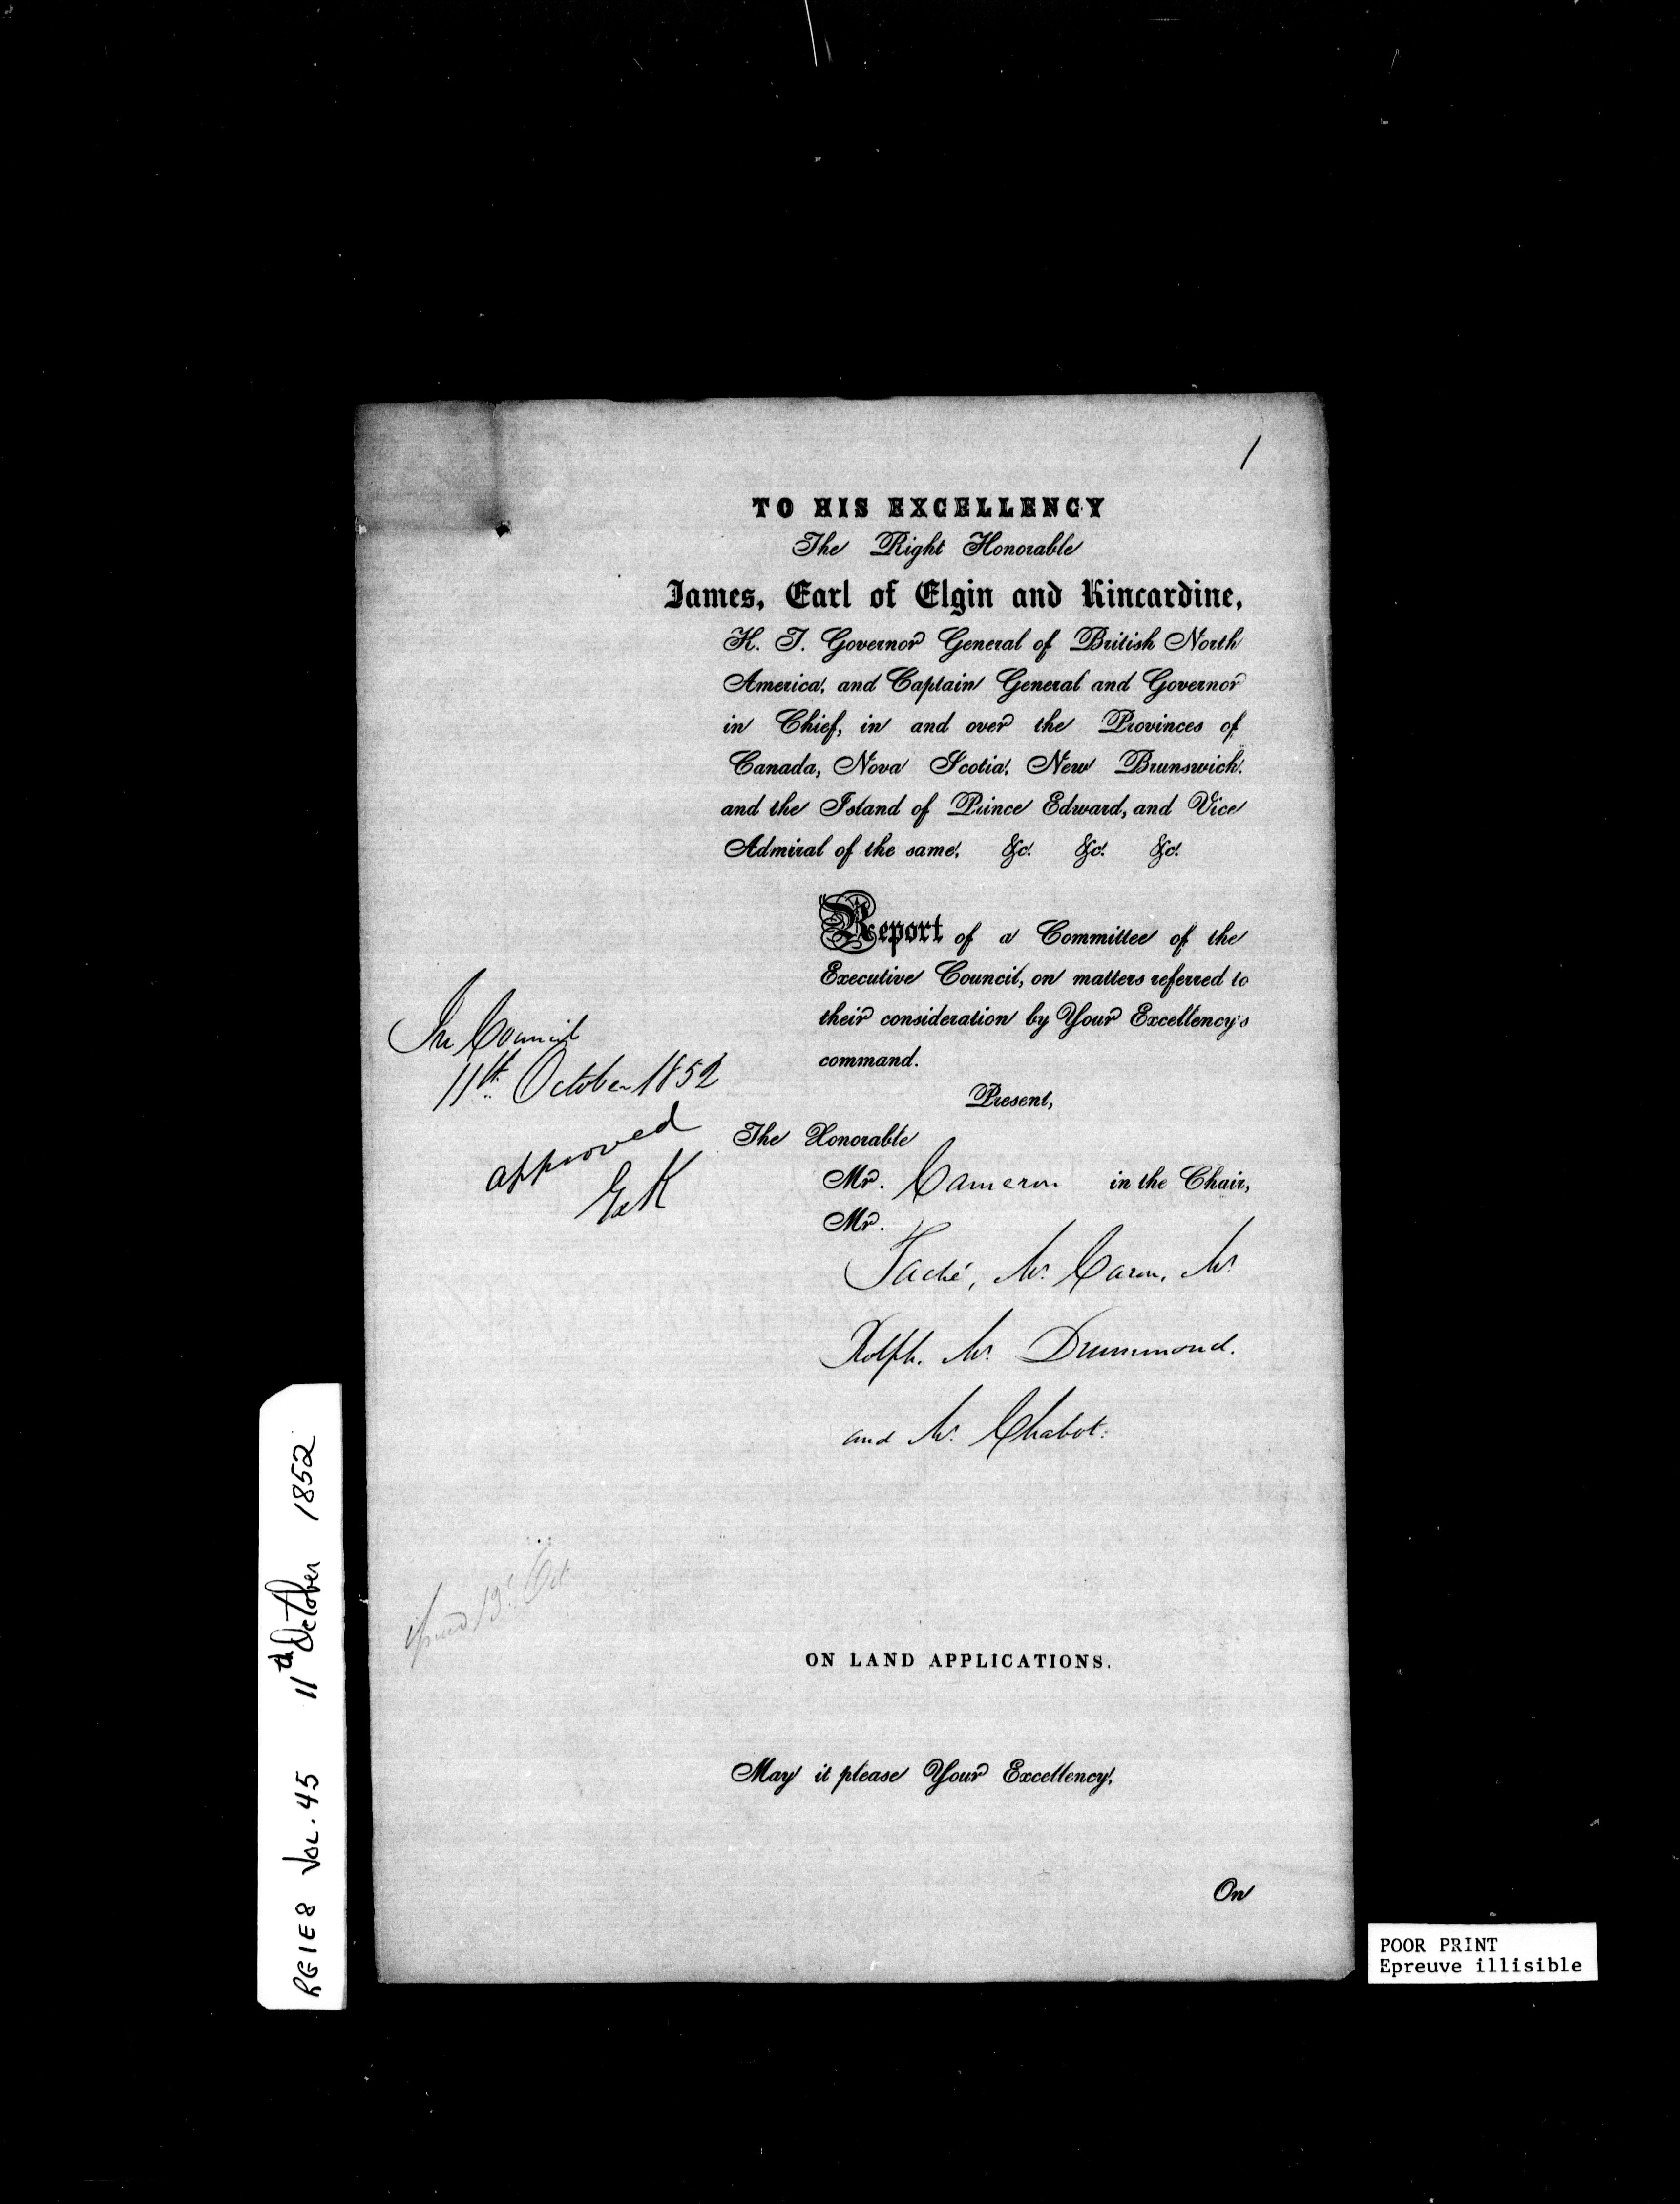 1
TO HIS EXCELLENCY
The Right Honorable
James, Earl of Elgin and Kincardine,
K. T. Governor General of British North
America, and Captain General and Governor
in Chief, in and over the Provinces of
Canada, Nova Scotia, New Brunswick,
and the Island of Prince Edward, and Vice
Admiral of the same, &c. &c. &c.
Report of a Committee of the
Executive Council, on matters referred to
their consideration by Your Excellency's
command.
In Council
11th October 1852
approved
E&K
Present,
The Honorable
Mr. Cameron in the Chair,
Mr.
Taché, Mr. Caron, Mr.
Rolph. Mr. Drummond.
and Mr. Chabot.
13th Oct
ON LAND APPLICATIONS.
May it please Your Excellency,
On
RG1E8 VOL. 45 11th October 1852
POOR PRINT
Epreuve illisible